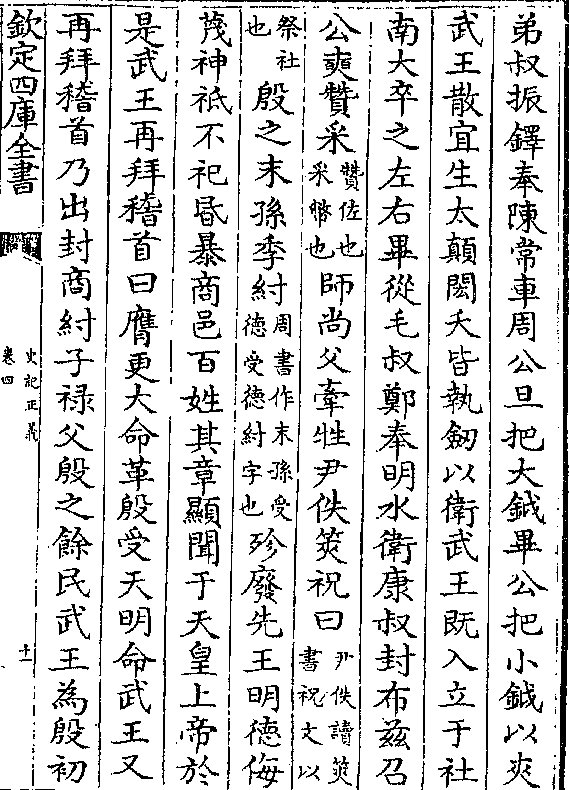 弟叔振鐸奉陳常車周公旦把大鉞畢公把小鉞以夾
武王散宜生太顛閎夭皆執劒以衛武王既入立于社
南大卒之左右畢從毛叔鄭奉明水衛康叔封布茲召
公奭贊采贊佐也采幣也師尚父牽牲尹佚筴祝曰尹佚讀筴書祝文以
祭社也殷之末孫季紂周書作末孫受德受德紂字也殄廢先王明德侮
蔑神祇不祀昏暴商邑百姓其章顯聞于天皇上帝於
是武王再拜稽首曰膺更大命革殷受天明命武王又
再拜稽首乃出封商紂子禄父殷之餘民武王為殷初
欽定四庫全書
史記正義
卷四
十一